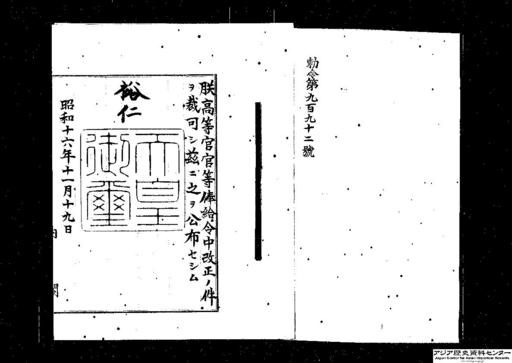 勅令第九百九十二號
朕高等官官等俸給令中改正ノ件
ヲ裁可シ茲ニ之ヲ公布セシム
裕仁
天皇御璽
昭和十六年十一月十九日
内閣
アジア歴史資料センター
Japan Center for Asian Historical Records